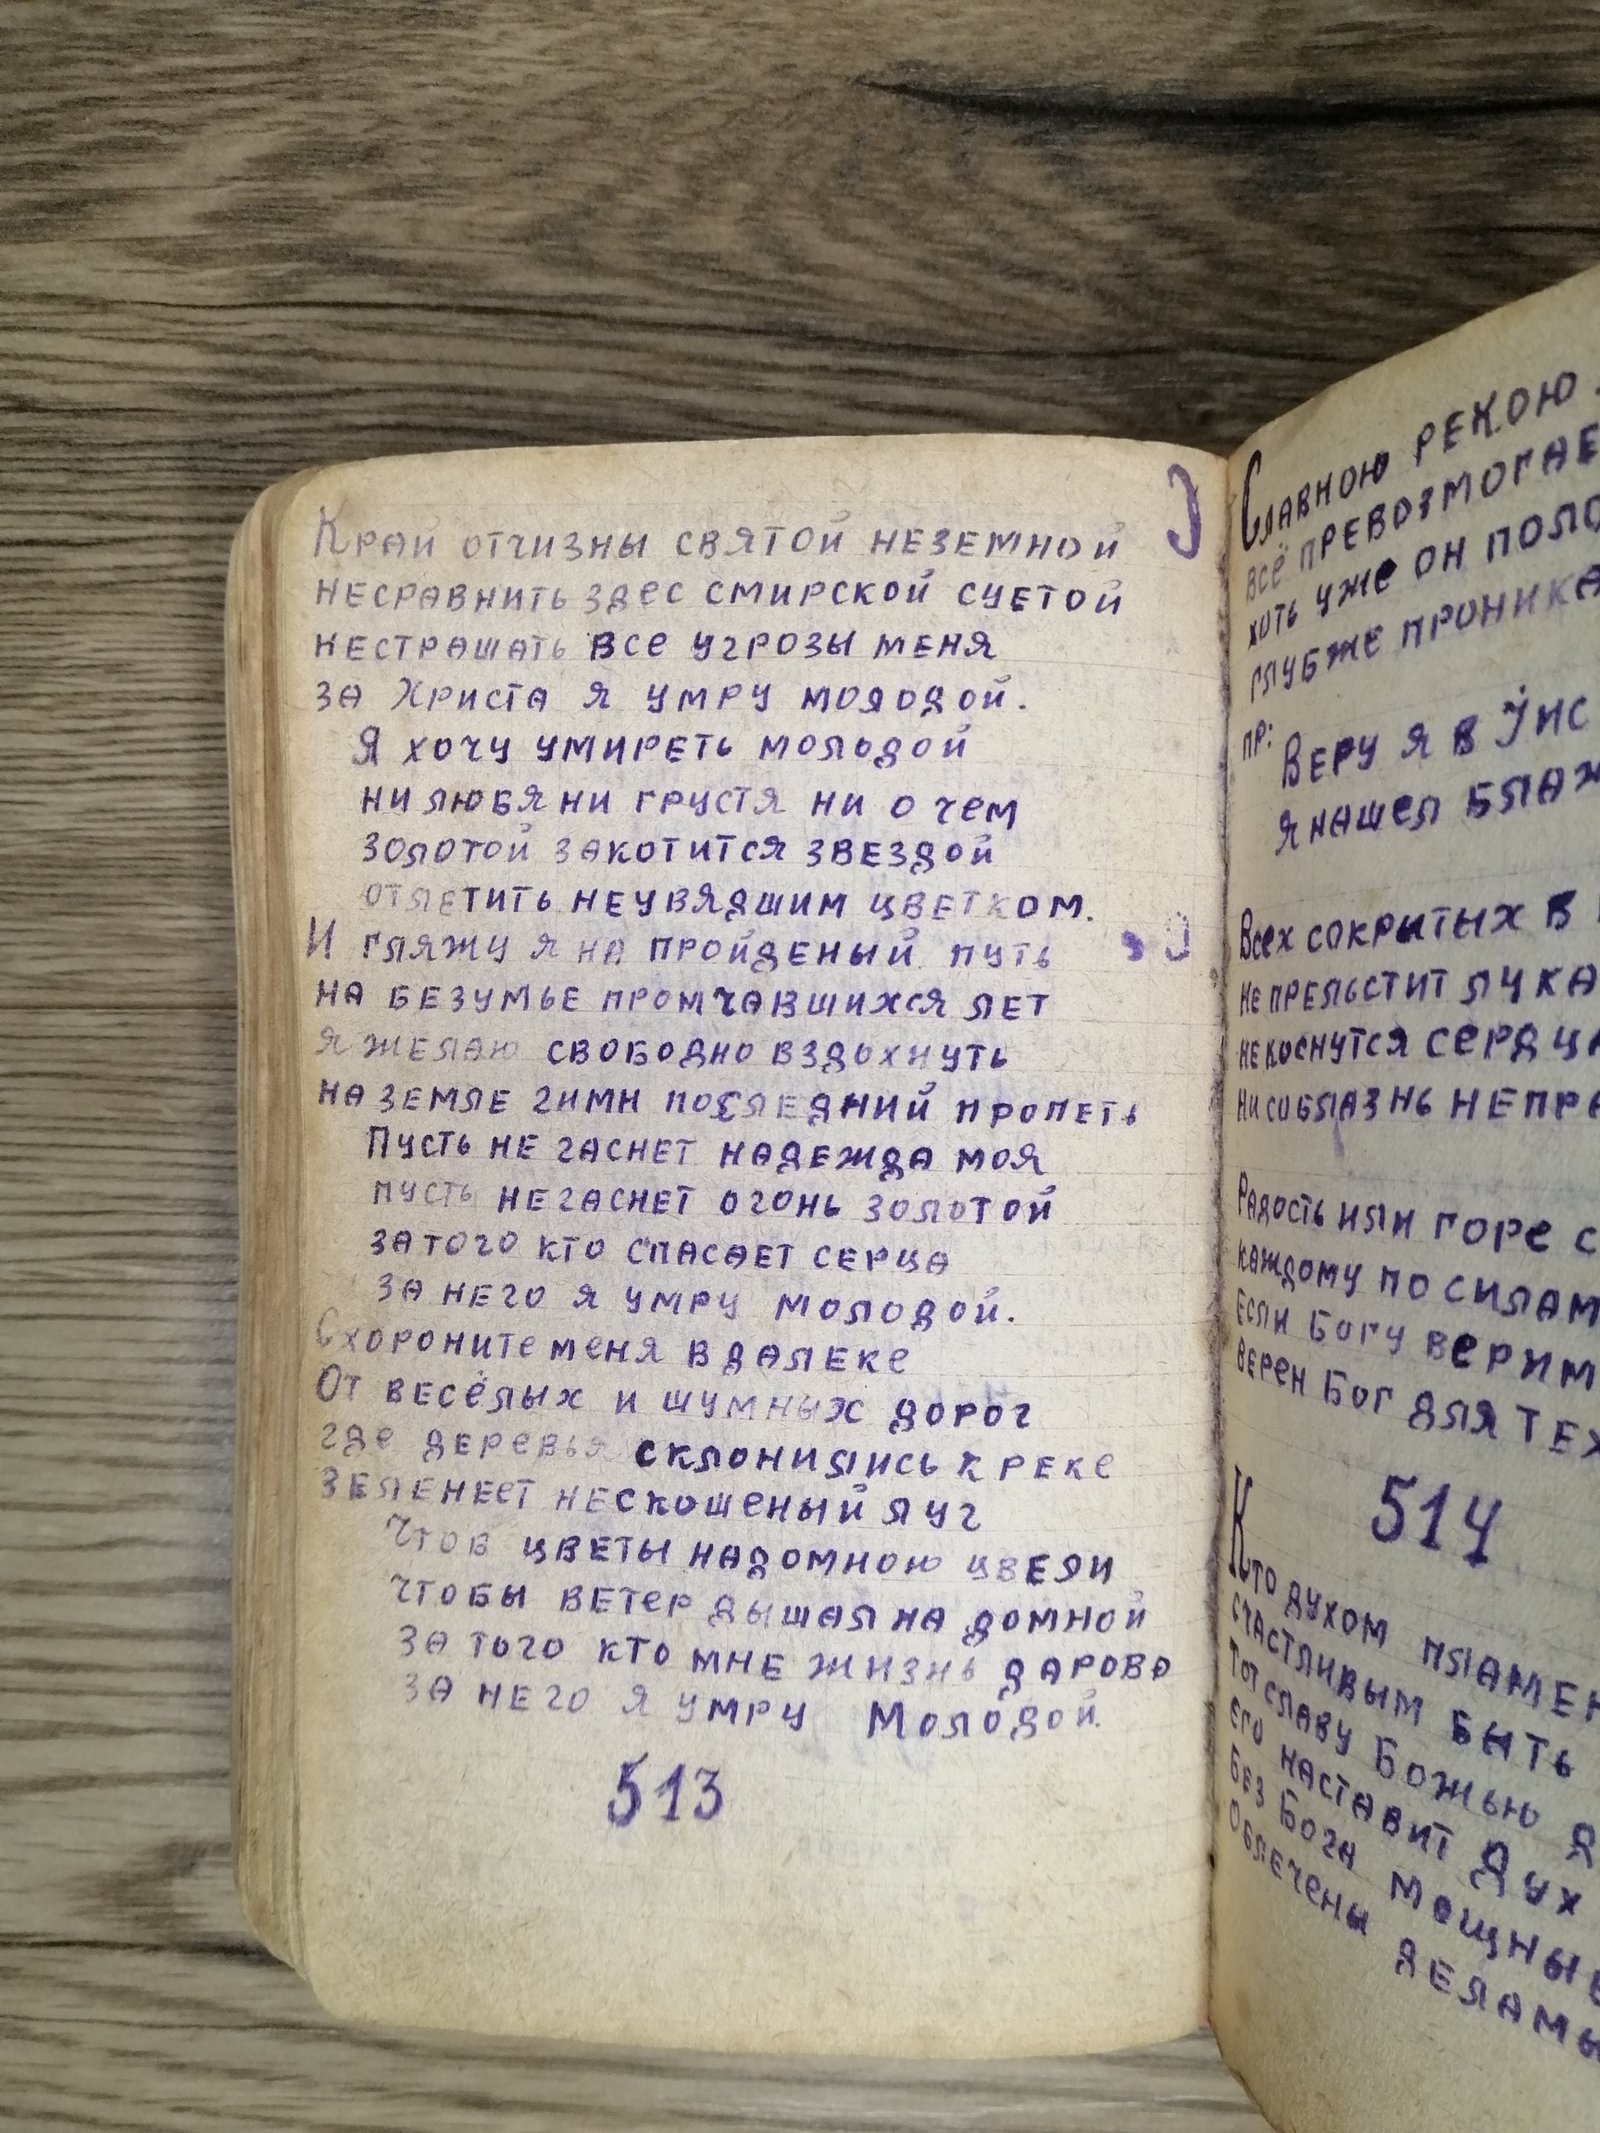 Край отчизны святой неземной
несравнить здес смирской суетой
нестрашать все угрозы меня
за Христа я умру молодой.
Я хочу умиреть молодой
ни любя ни грустя ни о чем
золотой закотится звездой
отлетить неувядшим цветком.
И гляжу я на пройденый путь
на безумье промчавшихся лет
я желаю свободно вздохнуть
на земле гимн последний пропеть
Пусть не гаснет надежда моя
пусть негаснет огонь золотой
за того кто спасает серца
за него я умру молодой.
Схороните меня вдалеке
От весёлых и шумных дорог
где деревья склонились к реке
зеленеет нескошеный луг
Чтов цветы надомною цвели
чтобы ветер дышал на домной
за того кто мне жизнь дарова
за него я умру Молодой.
513
Славною рекою
всё превозмогае
хоть уже он поло
глубже проника
пр: Веру я в Иис
я нашел блаж
Всех сокрытых в
не прельстит лука
некоснутся сердца
ни соблазнь непра
Радость или горе с
каждому по силам
Если Богу верим
верен Бог для тех
514
Кто духом пламен
счастливым быть
Тот славу Божью
его наставит Дух
Без Бога мощны
облечены делам